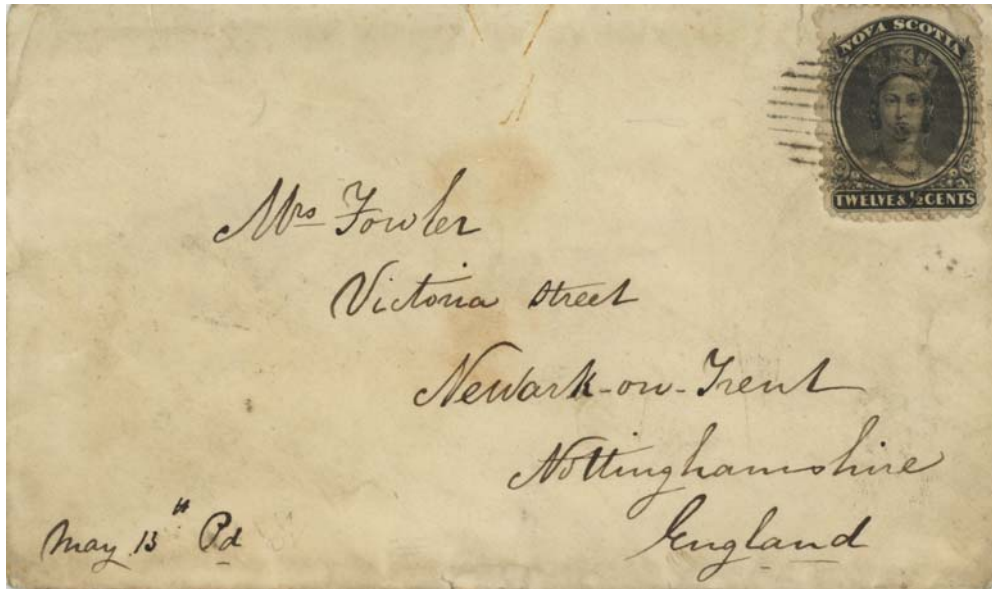 NOVA SCOTIA
TWELVE & ½ CENTS
Mrs Fowler
Victoria Street
Newark-on-Trent
Nottinghamshire
England
May 13th Pd